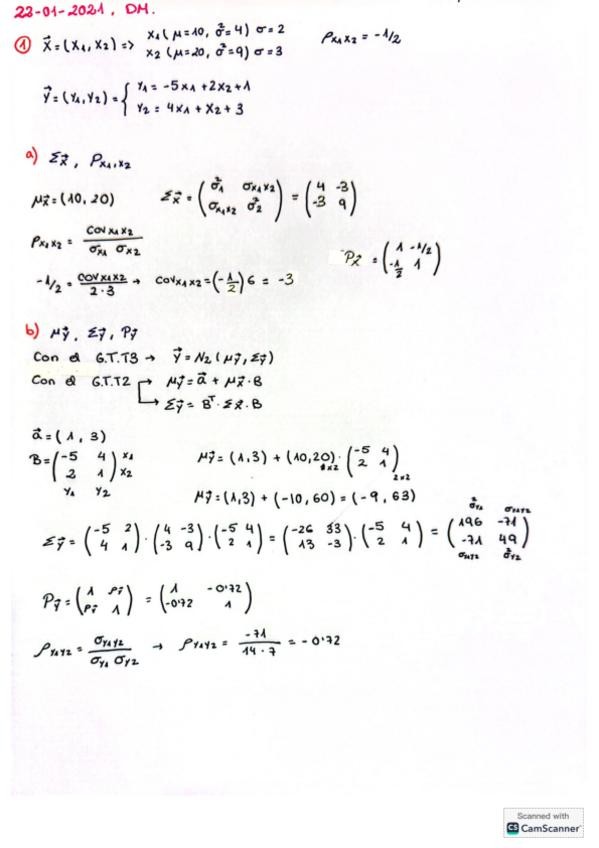 22-01-2021, DM.
① X⃗ = (X₁, X₂) => X₁ (μ=10, σ²=4) σ=2
X₂ (μ=20, σ²=9) σ=3
ρx₁x₂ = -1/2
Y⃗ = (Y₁, Y₂) = { Y₁ = -5X₁ + 2X₂ + 1
Y₂ = 4X₁ + X₂ + 3
a) Σx⃗, Px₁,x₂
μx⃗ = (10, 20)
Σx⃗ = (σ²₁ σx₁x₂ ; σx₁x₂ σ²₂) = (4 -3 ; -3 9)
ρx₁x₂ = COVx₁x₂ / σx₁ σx₂
Px⃗ = (1 -1/2 ; -1/2 1)
-1/2 = COVx₁x₂ / 2·3 → COVx₁x₂ = (-1/2) 6 = -3
b) μy⃗, Σy⃗, Py⃗
Con el G.T.T3 → Y⃗ = N₂ (μy⃗, Σy⃗)
Con el G.T.T2 → μy⃗ = a⃗ + μx⃗ · B
→ Σy⃗ = Bᵀ · Σx⃗ · B
a⃗ = (1, 3)
B = (-5 4 ; 2 1) x₁ x₂
Y₁ Y₂
μy⃗ = (1,3) + (10,20) · (-5 4 ; 2 1)
1x2 2x2
μy⃗ = (1,3) + (-10, 60) = (-9, 63)
Σy⃗ = (-5 2 ; 4 1) · (4 -3 ; -3 9) · (-5 4 ; 2 1) = (-26 33 ; 13 -3) · (-5 4 ; 2 1) = (196 -71 ; -71 49)
σ²y₁ σy₁y₂
σy₁y₂ σ²y₂
Py⃗ = (1 ρy⃗ ; ρy⃗ 1) = (1 -0'72 ; -0'72 1)
ρy₁y₂ = σy₁y₂ / σy₁ σy₂ → ρy₁y₂ = -71 / 14·7 = -0'72
Scanned with
CS CamScanner